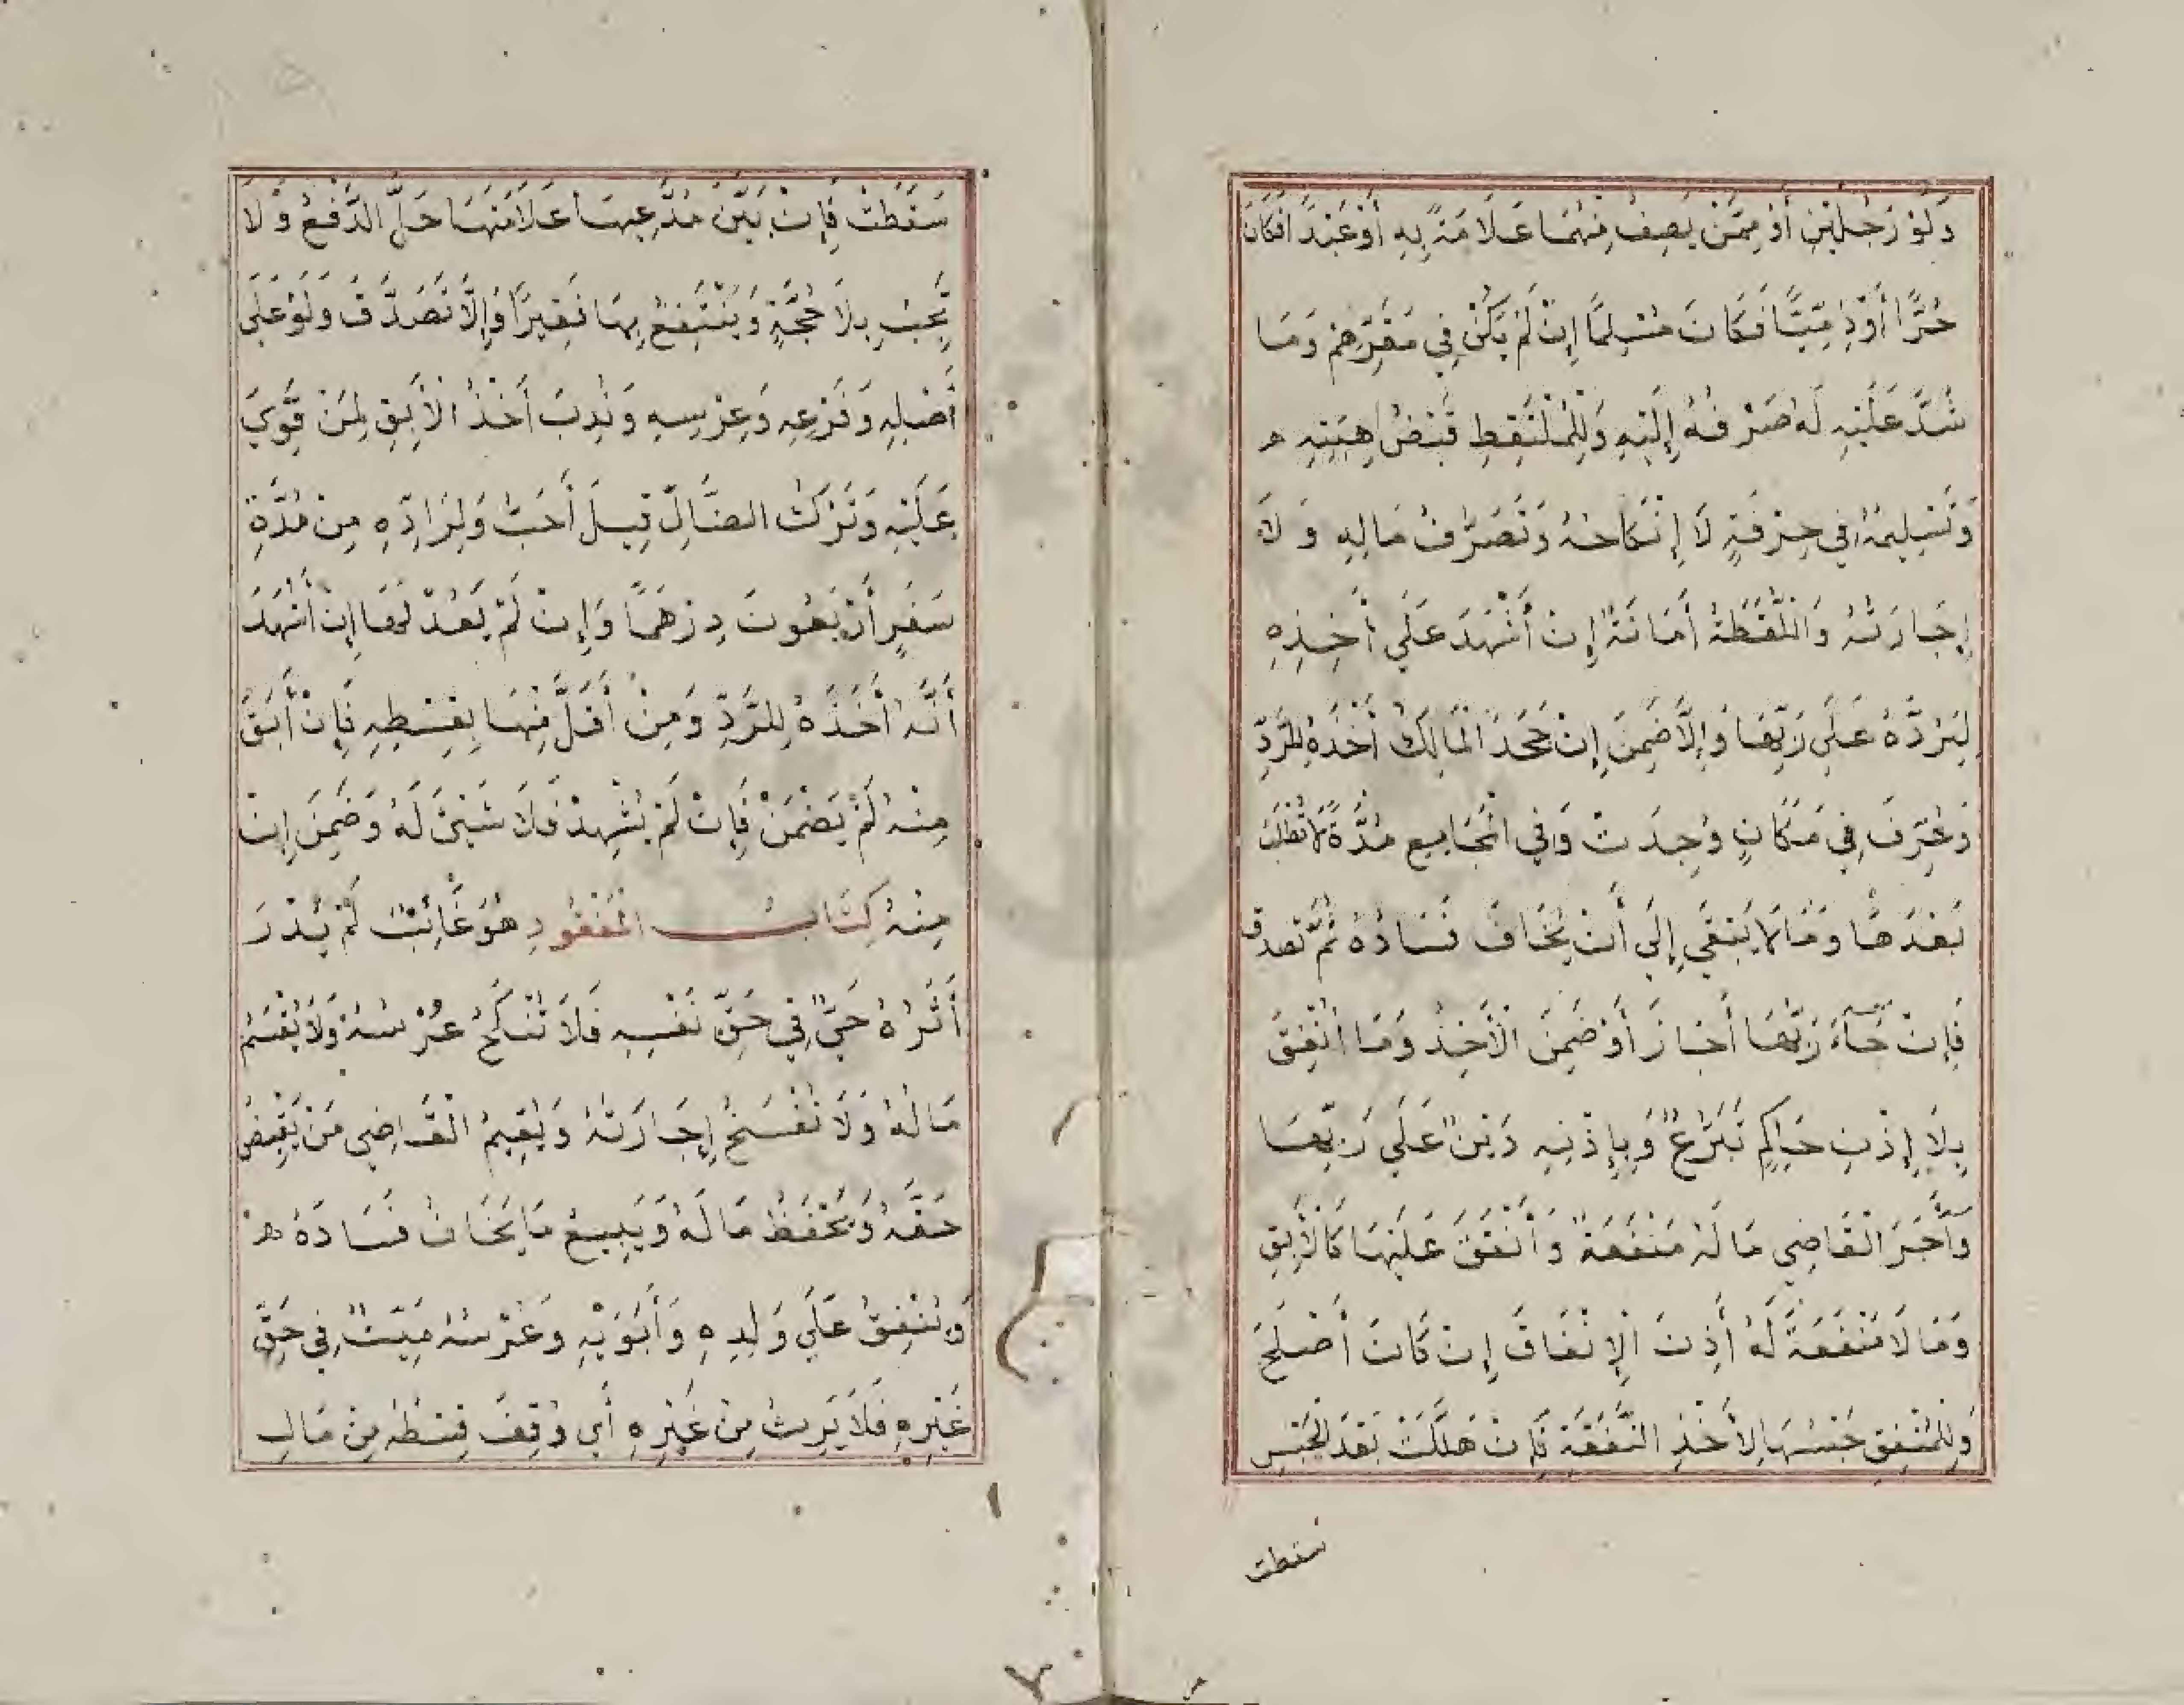 وَلَوْ رَجُلَيْنِ أَوْ مِمَّنْ يَصِفُ مِنْهُمَا عَلَامَةً بِهِ أَوْ عَبْدًا فَكَانَ
حُرًّا أَوْ ذِمِّيًّا فَكَانَ مُسْلِمًا إِنْ لَمْ يَكُنْ فِي مَقَرِّهِمْ وَمَا
شُدَّ عَلَيْهِ لَهُ صَرْفُهُ إِلَيْهِ وَلِلْمُلْتَقِطِ قَبْضُ هِبَتِهِ
وَتَسْلِيمُهُ فِي حِرْفَةٍ لَا إِنْكَاحُهُ وَتَصَرُّفُ مَالِهِ وَلَا
إِجَارَتُهُ وَاللُّقَطَةُ أَمَانَةٌ إِنْ أَشْهَدَ عَلَى أَخْذِهِ
لِيَرُدَّهُ عَلَى رَبِّهَا وَإِلَّا ضَمِنَ إِنْ جَحَدَ الْمَالِكُ أَخْذَهُ لِلرَّدِّ
وَعُرِّفَ فِي مَكَانٍ وُجِدَتْ وَفِي الْجَامِعِ مُدَّةً لَا تُطْلَبُ
بَعْدَهَا وَمَا لَا يَبْقَى إِلَى أَنْ يُخَافَ فَسَادُهُ ثُمَّ تصدق
فَإِنْ جَاءَ رَبُّهَا أَجَازَ أَوْ ضَمِنَ الْآخِذُ وَمَا أُنْفِقَ
بِلَا إِذْنِ حَاكِمٍ تَبَرُّعٌ وَبِإِذْنِهِ دَيْنٌ عَلَى رَبِّهَا
وَآجَرَ الْقَاضِي مَا لَهُ مَنْفَعَةٌ وَأَنْفَقَ عَلَيْهَا كَالْآبِقِ
وَمَا لَا مَنْفَعَةَ لَهُ أَذِنَ الْإِنْفَاقَ إِنْ كَانَ أَصْلَحَ
وَلِلْمُنْفِقِ حَبْسُهَا لِأَخْذِ النَّفَقَةِ فَإِنْ هَلَكَتْ بَعْدَ الْحَبْسِ
سقطت
سَقَطَتْ فَإِنْ بَيَّنَ مُدَّعِيهَا عَلَامَتَهَا حَلَّ الدَّفْعُ وَلَا
يَجِبُ بِلَا حُجَّةٍ وَيَنْتَفِعُ بِهَا فَقِيرًا وَإِلَّا تَصَدَّقَ وَلَوْ عَلَى
أَصْلِهِ وَفَرْعِهِ وَعِرْسِهِ وَنُدِبَ أَخْذُ الْآبِقِ لِمَنْ قَوِيَ
عَلَيْهِ وَتَرْكُ الضَّالِّ قِيلَ أَحَبُّ وَلِرَادِّهِ مِنْ مُدَّةِ
سَفَرٍ أَرْبَعُونَ دِرْهَمًا وَإِنْ لَمْ يَعْدُلْهَا إِنْ أَشْهَدَ
أَنَّهُ أَخَذَهُ لِلرَّدِّ وَمِنْ أَقَلَّ مِنْهَا بِقِسْطِهِ فَإِنْ أَبَقَ
مِنْهُ لَمْ يَضْمَنْ فَإِنْ لَمْ يُشْهِدْ فَلَا شَيْئَ لَهُ وَضَمِنَ إِنْ
مِنْهُ كِتَابُ الْمَفْقُودِ هُوَ غَائِبٌ لَمْ يُدْرَ
أَثَرُهُ حَيٌّ فِي حَقِّ نَفْسِهِ فَلَا تُنْكَحُ عِرْسُهُ وَلَا يُقْسَمُ
مَالُهُ وَلَا تُفْسَخُ إِجَارَتُهُ وَيُقِيمُ الْقَاضِي مَنْ يَقْبِضُ
حَقَّهُ وَيَحْفَظُ مَالَهُ وَيَبِيعُ مَا يَخَافُ فَسَادَهُ
وَيُنْفِقُ عَلَى وَلَدِهِ وَأَبَوَيْهِ وَعِرْسِهِ مَيِّتٌ فِي حَقِّ
غَيْرِهِ فَلَا يَرِثُ مِنْ غَيْرِهِ أَي وُقِفَ قِسْطُهُ مِنْ مَالِ